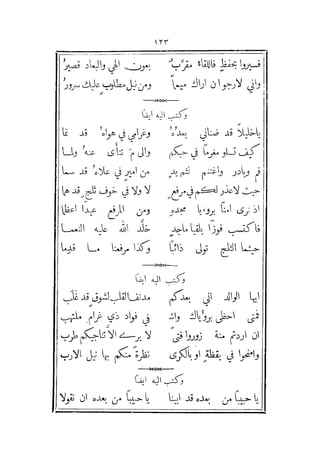 ١٢٣
فسيروا بحفظ فاللقاءُ مقرَّبٌ بعون الٰهي والبعاد قصيرُ
واني لارجو ان اراك ميمماً ومن نيل مطلوب عليك سرورُ
وكتب اليه ايضًا
ياخليلاً قد ضناني بعدُهُ وغرامي في هواهُ قد نما
كيف تسلو مغرمًا في حبكم والى مَ تنأى عنهُ ولما
قم وبادر واغتنم من امير في علاهُ قد سما
حيث لا عذر لكم في مرفع لا ولا في خوف ثلج قد هما
اذ نرى امنًا ومن المرفع عيدًا اعظما
فاكتسب فوزًا بلقيا ماجد خلَّد الله عليه النعما
حيثما الثلج تولى ذائبًا وكذا مرفعنا ما قدما
وكتب اليه ايضًا
ايها الوالد اني بعدكم مدنف القلب لشوق قد غلب
فمتى احظى برؤياك في فواد ذي غرام ملتهب
ان اردتم منة زوروا فتىً لا يرى الَّا تناجيكم طرب
وامنحوا في يقظةٍ او بالكرى نظرةً منكم بها نيل الارب
وكتب اليه ايضًا
يا حبيبًا من بعده قد ابينا يا حبيبًا من بعده ان نقولا